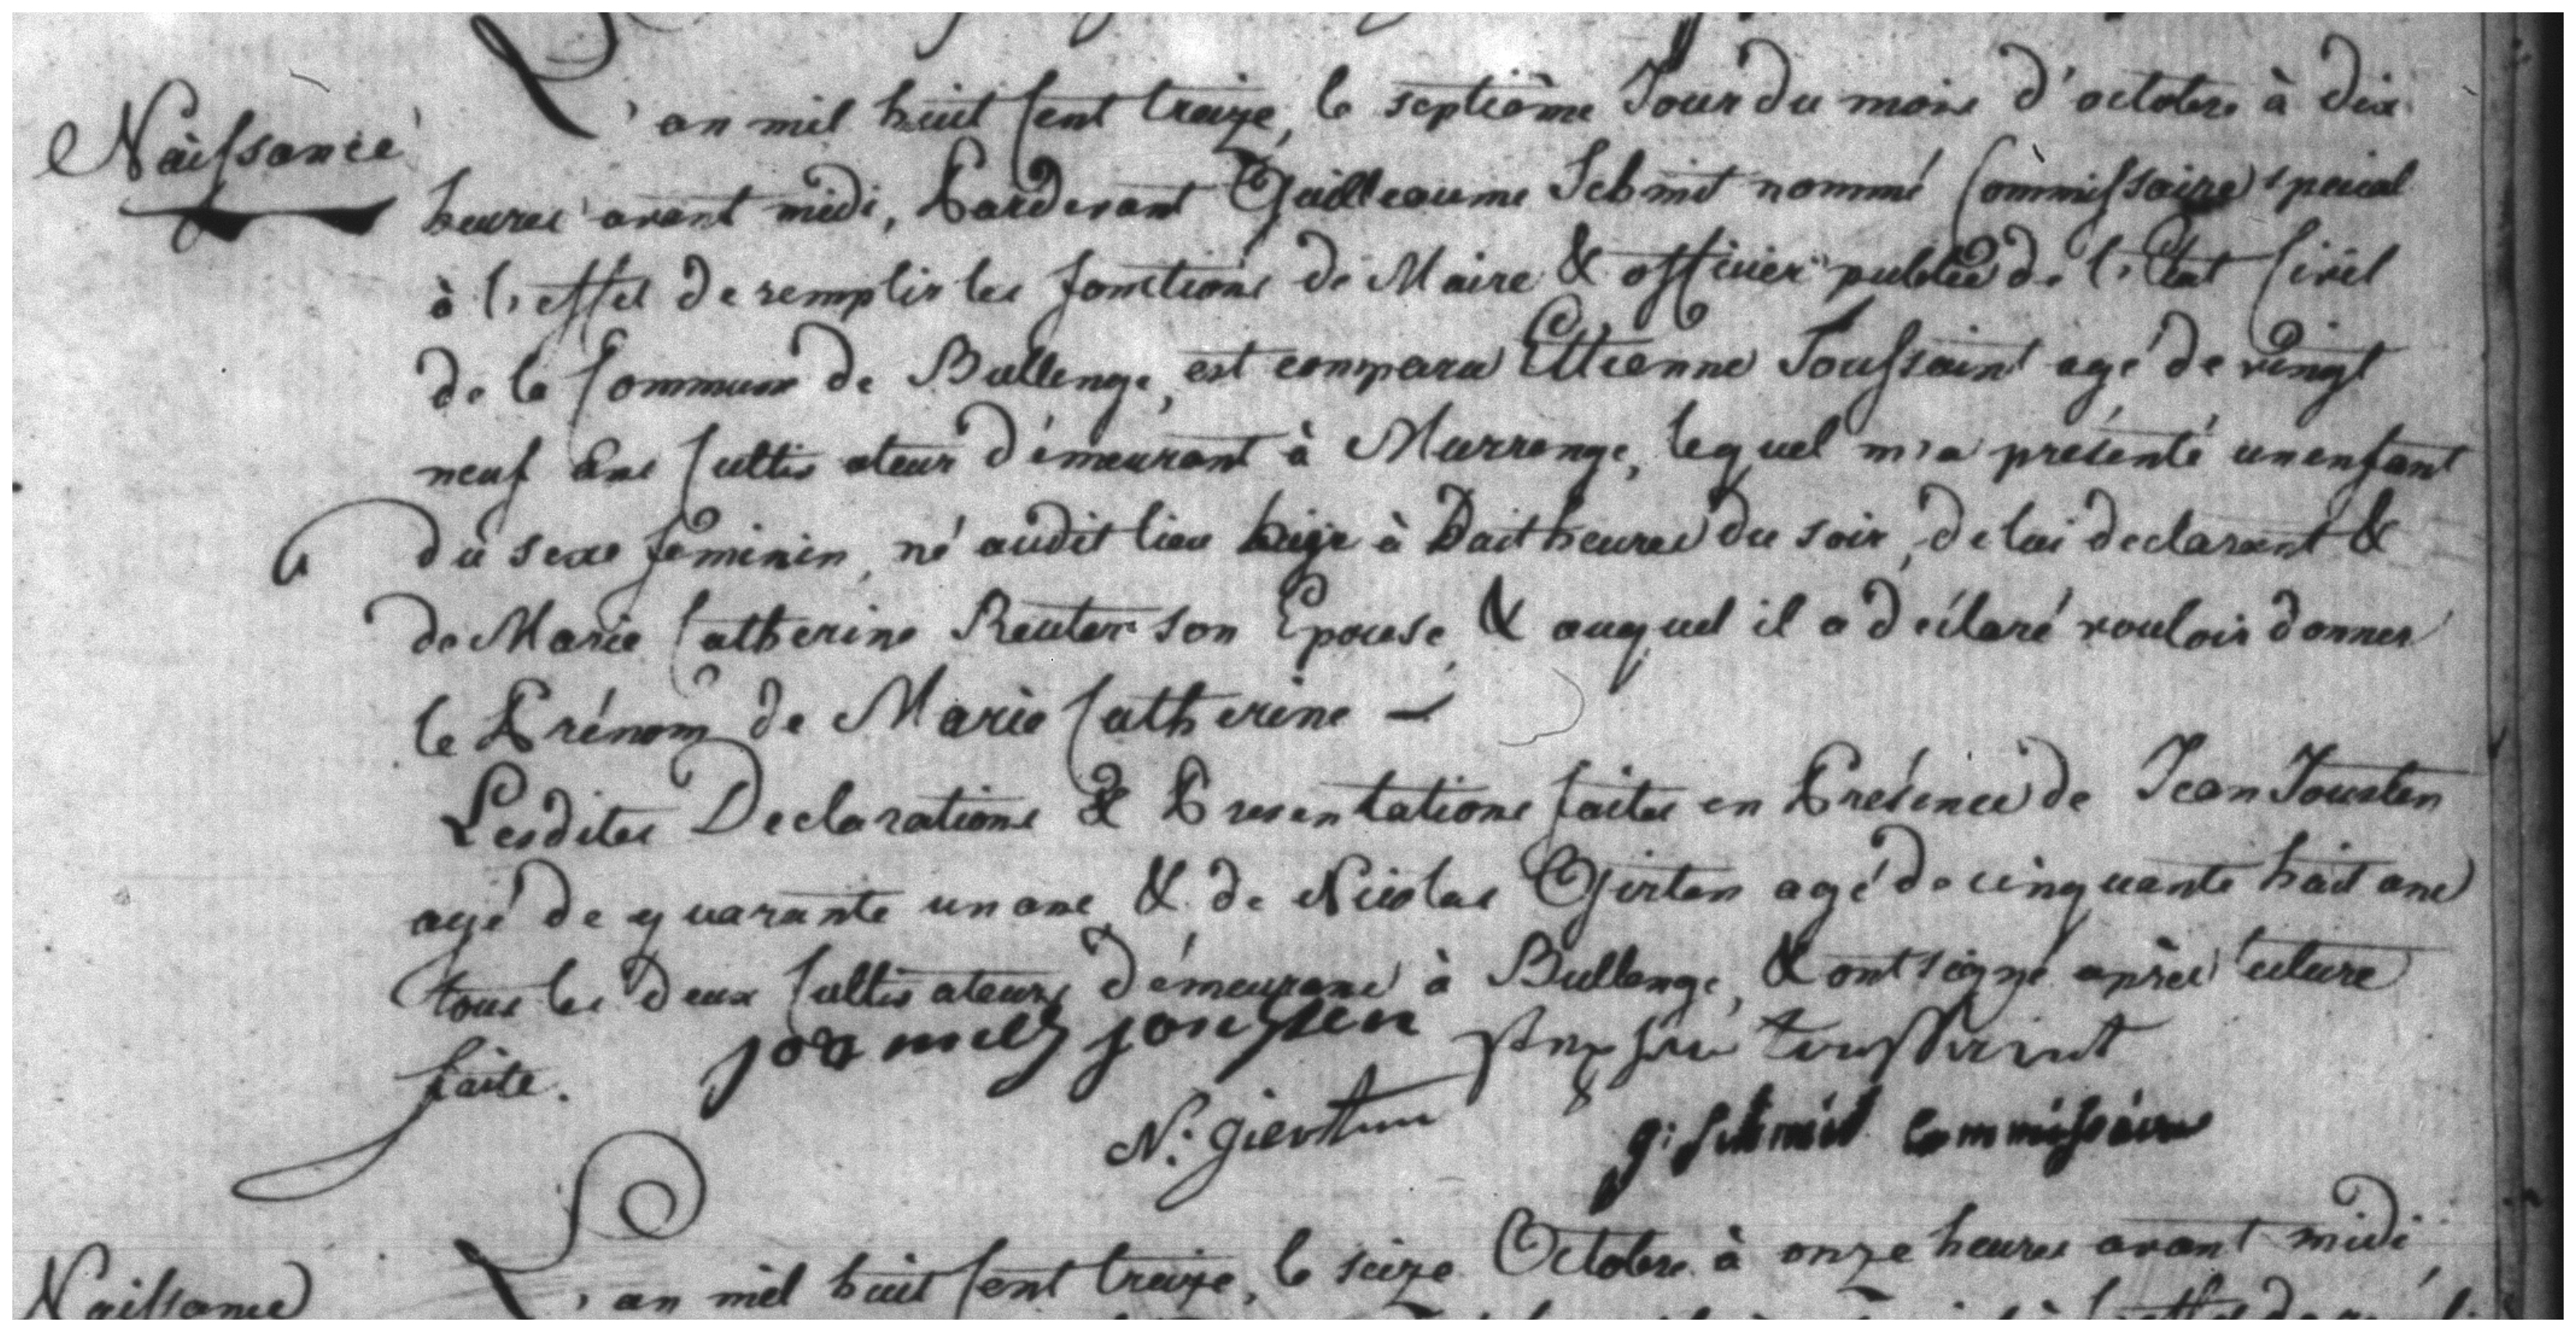 Naissance
L'an mil huit Cent treize, le septiême Jour du mois d'octobre à dix
heures avant midi, Pardevant Guilleaume Schmit nommé Commissaire special
à l'effet de remplir les fonctions de Maire & officier public de l'Etat Civil
de la Commune de Bullenge, est comparu Ettienne Toussaint agé de vingt
neuf ans Cultivateur démeurant à Murrenge, lequel m'a présenté un enfant
du sexe feminin, né audit lieu à huit heures du soir, de lui declarant &
de Marie Catherine Reuter son Epouse, & auquel il a déclaré vouloir donner
le Prénom de Marie Catherine —
Lesdites Declarations & Presentations faites en Présence de Jean Jousten
agé de quarante un ans & de Nicolas Girten agé de cinquante huit ans
tous les deux Cultivateurs démeurans à Bullenge, & ont signé après lecture
faite. jousten toussaint
N: giertten
g: schmit commissaire
Naissance
L'an mil huit Cent treize, le seize Octobre à onze heures avant midi,